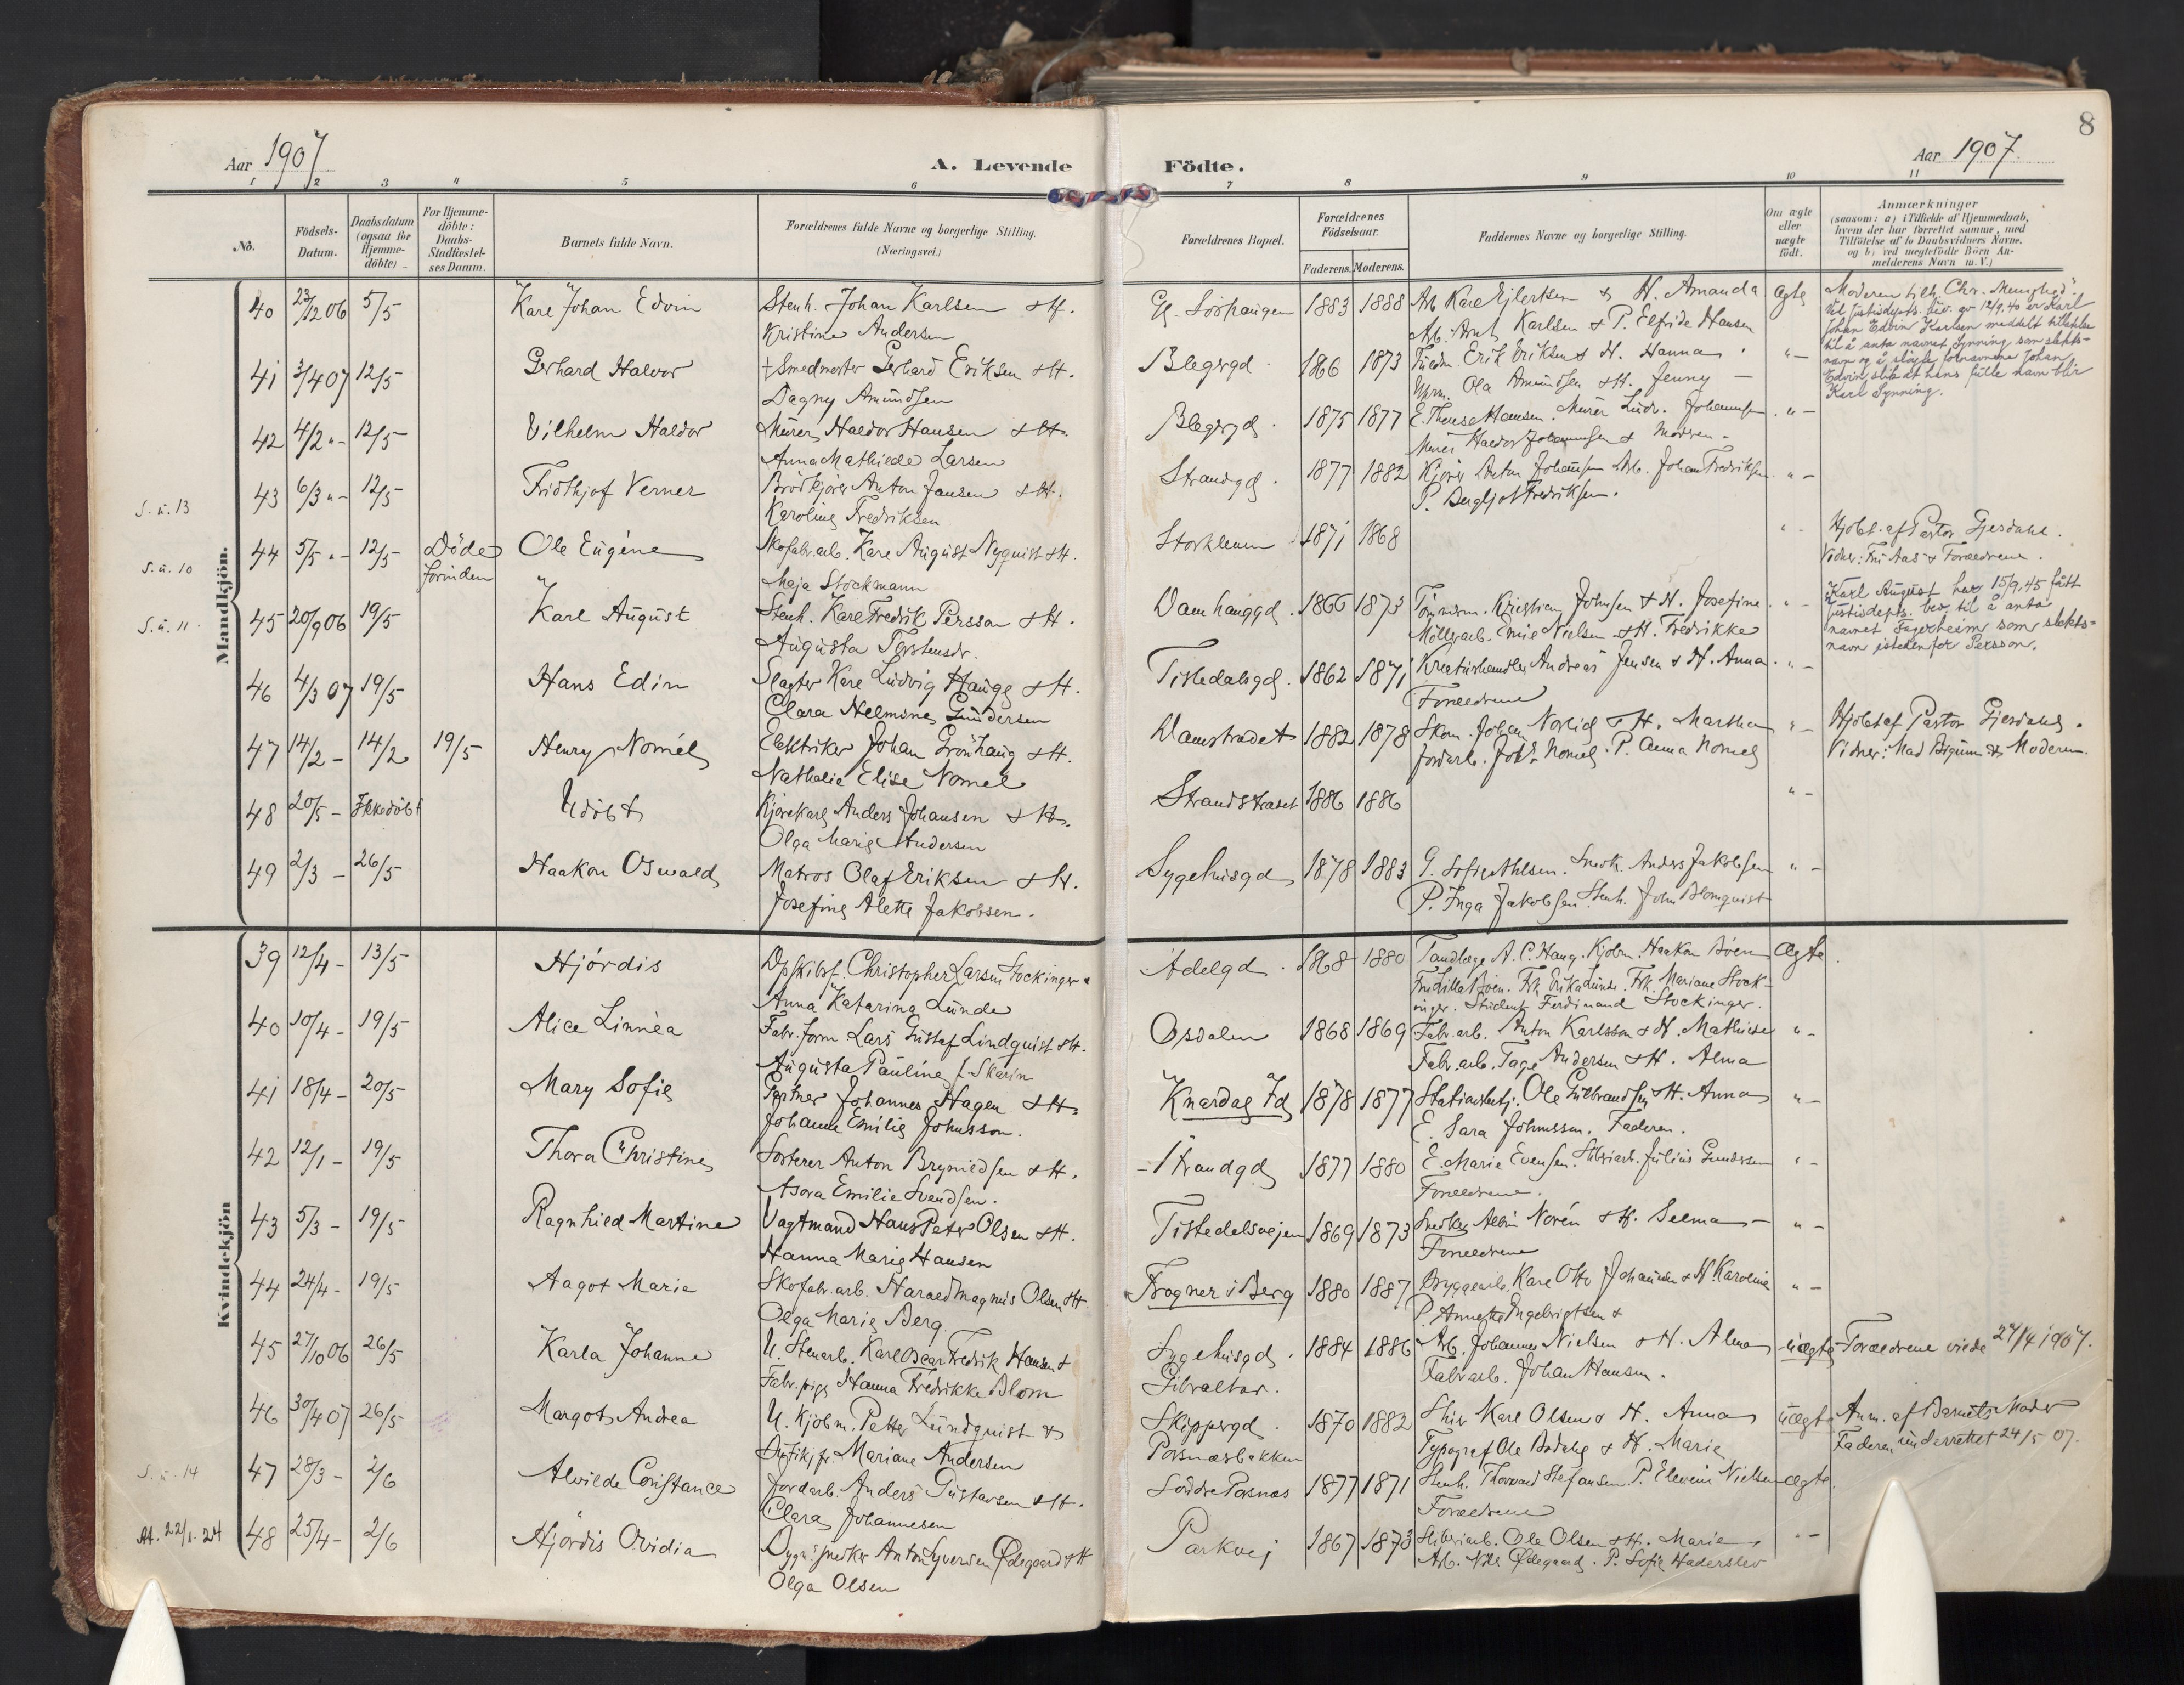 8
Aar 1907
A. Levende Födte.
Aar 1907.
1 2 3 4 5 6 7 8 9 10 11
No.
Födsels-
Datum.
Daabsdatum
(ogsaa for
Hjemme-
döbte)
For Hjemme-
döbte:
Daabs-
Stadfæstel-
ses Datum.
Barnets fulde Navn.
Forældrenes fulde Navne og borgerlige Stilling.
(Næringsvei.)
Forældrenes Bopæl.
Forældrenes
Födselsaar.
Faderens. Moderens.
Faddernes Navne og borgerlige Stilling.
Om ægte
eller
uægte
födt.
Anmærkninger
(saasom: a) i Tilfælde af Hjemmedaab,
hvem der har forrettet samme, med
Tilföielse af to Daabsvidners Navne,
og b) ved uægtefödte Börn An-
melderens Navn m. V.)
Mandkjön.
40 23/12 06 5/5 Karl Johan Edvin Stenh. Johan Karlsen & H.
Kristine Andersen
1883 1888 Arb. Karl Eilertsen & H. Amanda Ægte
Arb. Karlsen & P. Elfride Hansen
Moderen tilh. Chr. Menighed.
Ved Justisdepts. av 12/9.40 er Karl
Johan Edvin Karlsen meddelt tillatelse
til å anta navnet Synning som slekts-
navn og å sløyfe fornavnene Johan
Edvin, slik at hans fulle navn blir
Karl Synning.
41 3/4 07 12/5 Gerhard Halvor Smedmester Gerhard Eriksen & H.
Dagny Amundsen
Blegegd. 1866 1873 Erik Eriksen & H. Hanna
Ola Amundsen & H. Jenny
42 4/2 "- 12/5 Vilhelm Haldor Murer Haldor Hansen & H.
Anna Mathilde Larsen
Blegegd. 1875 1877 E. Therese Hansen. Murer Ludv. Johannesen "-
Murer Haldor Johannesen & Moderen.
S. u. 13
43 6/3 "- 12/5 Fridthjof Verner Brödkjörer Anton Jansen & H.
Karoline Fredriksen
Strandgd. 1877 1882 Kjörer Anton Johansen Arb. Johan Fredriksen "-
P. Bergljot Fredriksen.
S. u. 10
44 5/5 "- 12/5 Döde forinden Ole Eugéne Skofabr.arb. Karl August Nyquist & H.
Maja Stockmann
1871 1868 "-
Hjdbt. af Pastor Gjerdahl.
Vidner: Fru Aas & Forældrene.
S. u. 11
45 20/9 06 19/5 Karl August Stenh. Karl Fredrik Persson & H.
Augusta Torstensdr.
1866 1873 Tömmerm. Kristian Johnsen & H. Josefine "-
Möllerarb. Emil Nielsen & H. Fredrikke
Karl August har 15/9.45 fått
Justisdepts. bev. til å anta
navnet Fagerheim som slekts-
navn istedenfor Persson.
46 4/3 07 19/5 Hans Edin Slagter Karl Ludvig Hauge & H.
Clara Helmine Gundersen
Tistedalsgd. 1862 1871 Kreaturhandler Andreas Jensen & H. Anna "-
Forældrene
47 14/2 - 14/2 19/5 Henry Nomél Elektriker Johan Grönhaug & H.
Nathalie Elise Nomel
1882 1878 Skom. Johan Norlid & H. Martha "-
Jordarb. Johs Nomel. P. Anna Nomel
Hjdbt af Pastor Gjerdahl.
Vidner: Mad Bryun & Moderen.
48 20/5 - Ikkedöbt Udöbt Kjörekarl Anders Johansen & H.
Olga Marie Andersen
Strandstrædet 1886 1886 "-
49 2/3 - 26/5 Haakon Oswald Matros Olaf Eriksen & H.
Josefine Alette Jakobsen.
Sygehusgd. 1878 1883 G. Sofie Ahlsen. Snedk. Anders Jakobsen "-
P. Inga Jakobsen. Stenh. John Blomquist
Kvindekjön
39 12/4 - 13/5 Hjördis Dpskibsf. Christopher Larsen Stockinger &
Anna Katarina Lunde
Adelgd. 1868 1880 Tandlæge A. C. Haug. Kjöbm. Haakon Böen Ægte.
Fru Lilla Böen. Frk. Erika Lunde. Frk. Mariane Stock-
inger. Student Ferdinand Stockinger.
40 10/4 - 19/5 Alice Linnéa Fabr.form Lars Gustaf Lindquist & H.
Augusta Pauline f. Skarin
Osdalen 1868 1869 Fabr.arb. Anton Karlsson & H. Mathilde "-
Fabr.arb. Tage Andersen & H. Alma
41 18/4 - 20/5 Mary Sofie Gartner Johannes Hagen & H.
Johanne Emilie Johnsson.
Knardal Id 1878 1877 Stationsbetj. Ole Gulbrandsen & H. Anna "-
E. Sara Johnsson. Faderen.
42 12/1 - 19/5 Thora Christine Sorterer Anton Brynildsen & H.
Asora Emilie Svendsen.
Strandgd 1877 1880 E. Marie Evensen. Sliberiarb. Julius Gundersen "-
Forældrene.
43 5/3 - 19/5 Ragnhild Martine Vagtmand Hans Peter Olsen & H.
Hanna Marie Hansen
Tistedalsvejen 1869 1873 Snedker Albin Norén & H. Selma "-
Forældrene
44 24/4 - 19/5 Aagot Maria Skofabr.arb. Harald Magnus Olsen & H.
Olga Marie Berg.
Fragner i Berg 1880 1887 Bryggearb. Karl Otto Johansen & H. Karoline "-
P. Annette Engebrigtsen &
45 27/10 06 26/5 Karla Johanne U. Stenarb. Karl Oscar Fredrik Hansen &
Fabr.pige Hanna Fredrikke Blom
Sygehusgd.
Gibraltar. 1884 1886 Arb. Johannes Nielsen & H. Alma uægte
Fabr.arb. Johan Hansen.
Forældrene viede 27/4 1907.
46 30/4 07 26/5 Margot Andrea U. Kjöbm. Petter Lundquist &
Butikjfr. Mariane Andersen
Skippergd.
Posnæsbakken 1870 1882 Karl Olsen & H. Anna uægte
Typograf Ole Bodahl & H. Marie
Anm. af Barnets Moder
Faderen underrettet 24/5 07.
S. u. 14
47 28/3 - 2/6 Alvilde Constance Jordarb. Anders Gustavsen & H.
Clara Johannesen
Söndre Posnæs 1877 1871 Stenh. Thorvald Stefansen. P. Nielsen ægte.
Forældrene
At. 22/1.24
48 25/4 - 2/6 Hjördis Ovidia Bygn.snedker Anton Syversen Ødegaard & H.
Olga Olsen
Parkvej 1867 1873 Sliberiarb. Ole Olsen & H. Marie "-
Arb. Nils Ødegaard. P. Sofie Haderslev